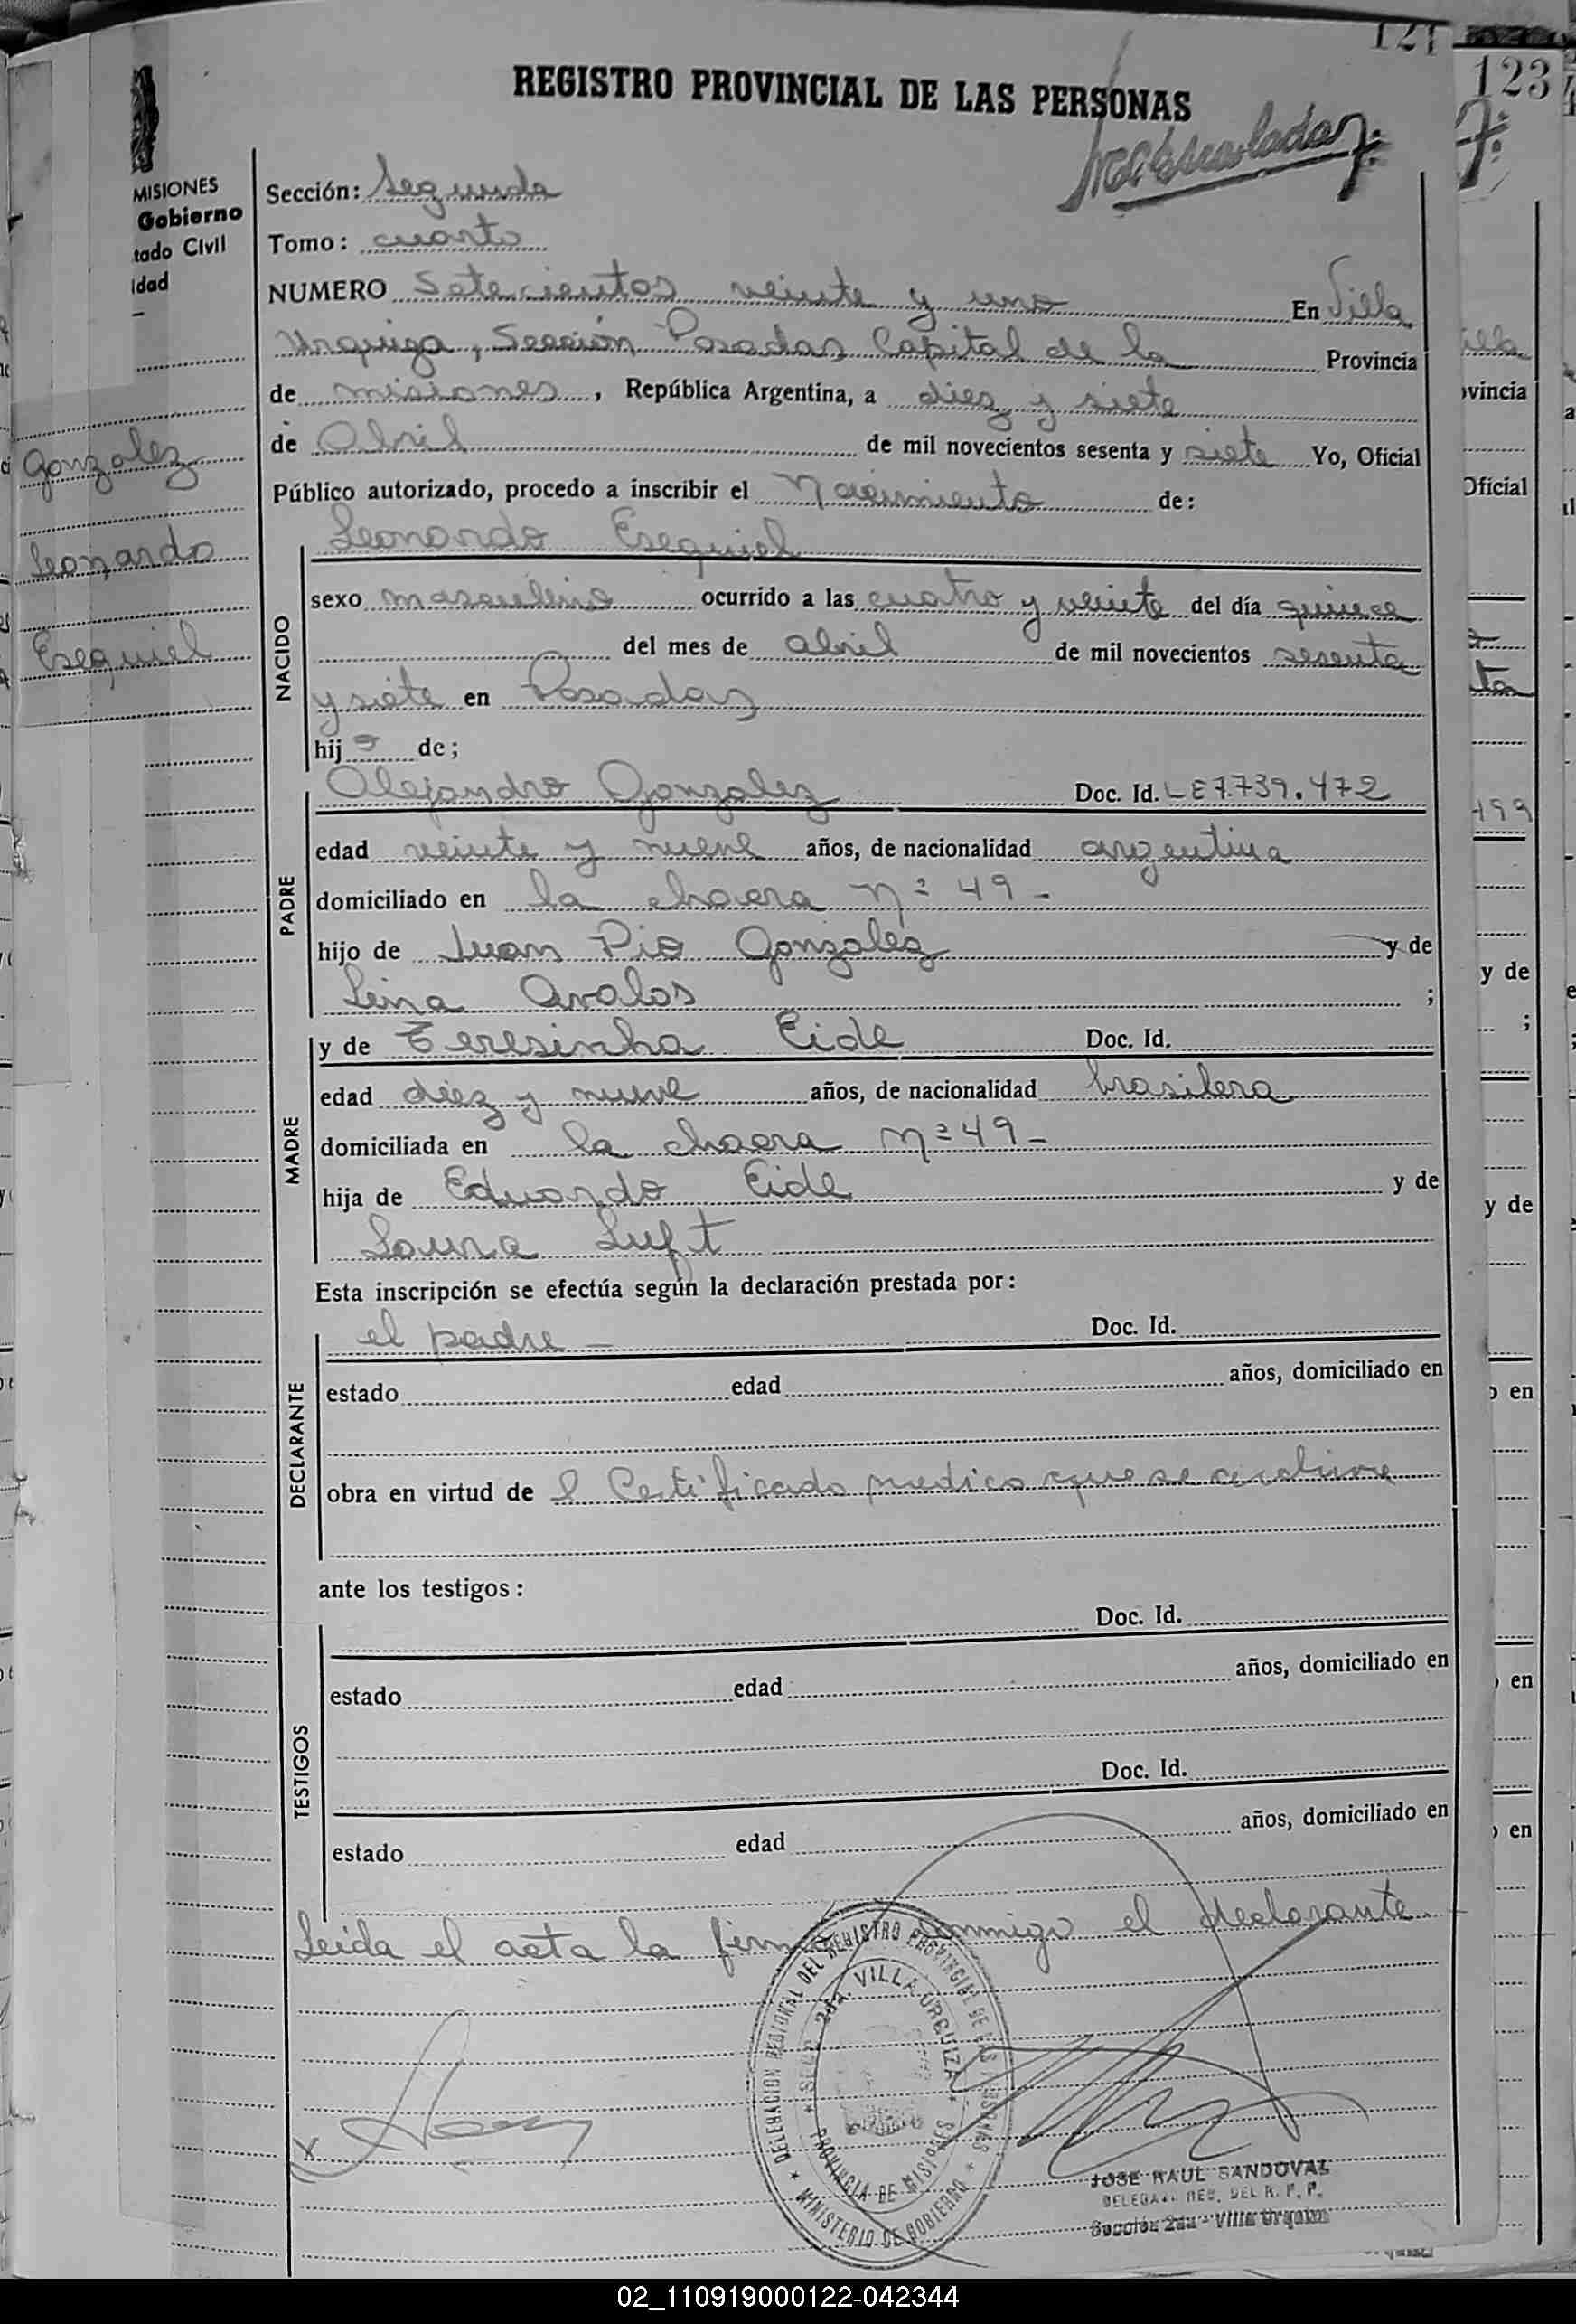 121
123
REGISTRO PROVINCIAL DE LAS PERSONAS
MISIONES
Gobierno
tado Civil
idad
Sección: Segunda
Tomo: cuarto
NUMERO Setecientos veinte y uno En Villa
Urquiza, Sección Posadas Capital de la Provincia
de misiones, República Argentina, a diez y siete
de Abril de mil novecientos sesenta y siete Yo, Oficial
Público autorizado, procedo a inscribir el Nacimiento de:
Gonzalez
Leonardo
Esequiel
NACIDO
Leonardo Esequiel
sexo masculino ocurrido a las cuatro y veinte del día quince
del mes de abril de mil novecientos sesenta
y siete en Posadas
hijo de;
PADRE
Alejandro Gonzalez Doc. Id. LE7.739.472
edad veinte y nueve años, de nacionalidad argentina
domiciliado en la chacra Nº 49-
hijo de Juan Pio Gonzalez y de
Lina Avalos ;
MADRE
y de Teresinha Eide Doc. Id.
edad diez y nueve años, de nacionalidad brasilera
domiciliada en la chacra Nº 49-
hija de Eduardo Eide y de
Laura Luft
Esta inscripción se efectúa según la declaración prestada por:
DECLARANTE
el padre - Doc. Id.
estado edad años, domiciliado en
obra en virtud de l Certificado medico que se archiva
ante los testigos:
TESTIGOS
Doc. Id.
estado edad años, domiciliado en
Doc. Id.
estado edad años, domiciliado en
Leida el acta la firma conmigo el declarante.
DELEGACION REGIONAL DEL REGISTRO PROVINCIAL DE LAS PERSONAS
SECC. 2da. VILLA URQUIZA
PROVINCIA DE MISIONES
MINISTERIO DE GOBIERNO
X
JOSE RAUL SANDOVAL
DELEGADO REG. DEL R. P. P.
Sección 2da - Villa Urquiza
illa
vincia
Oficial
ta
499
y de
;
y de
o en
en
en
02_110919000122-042344